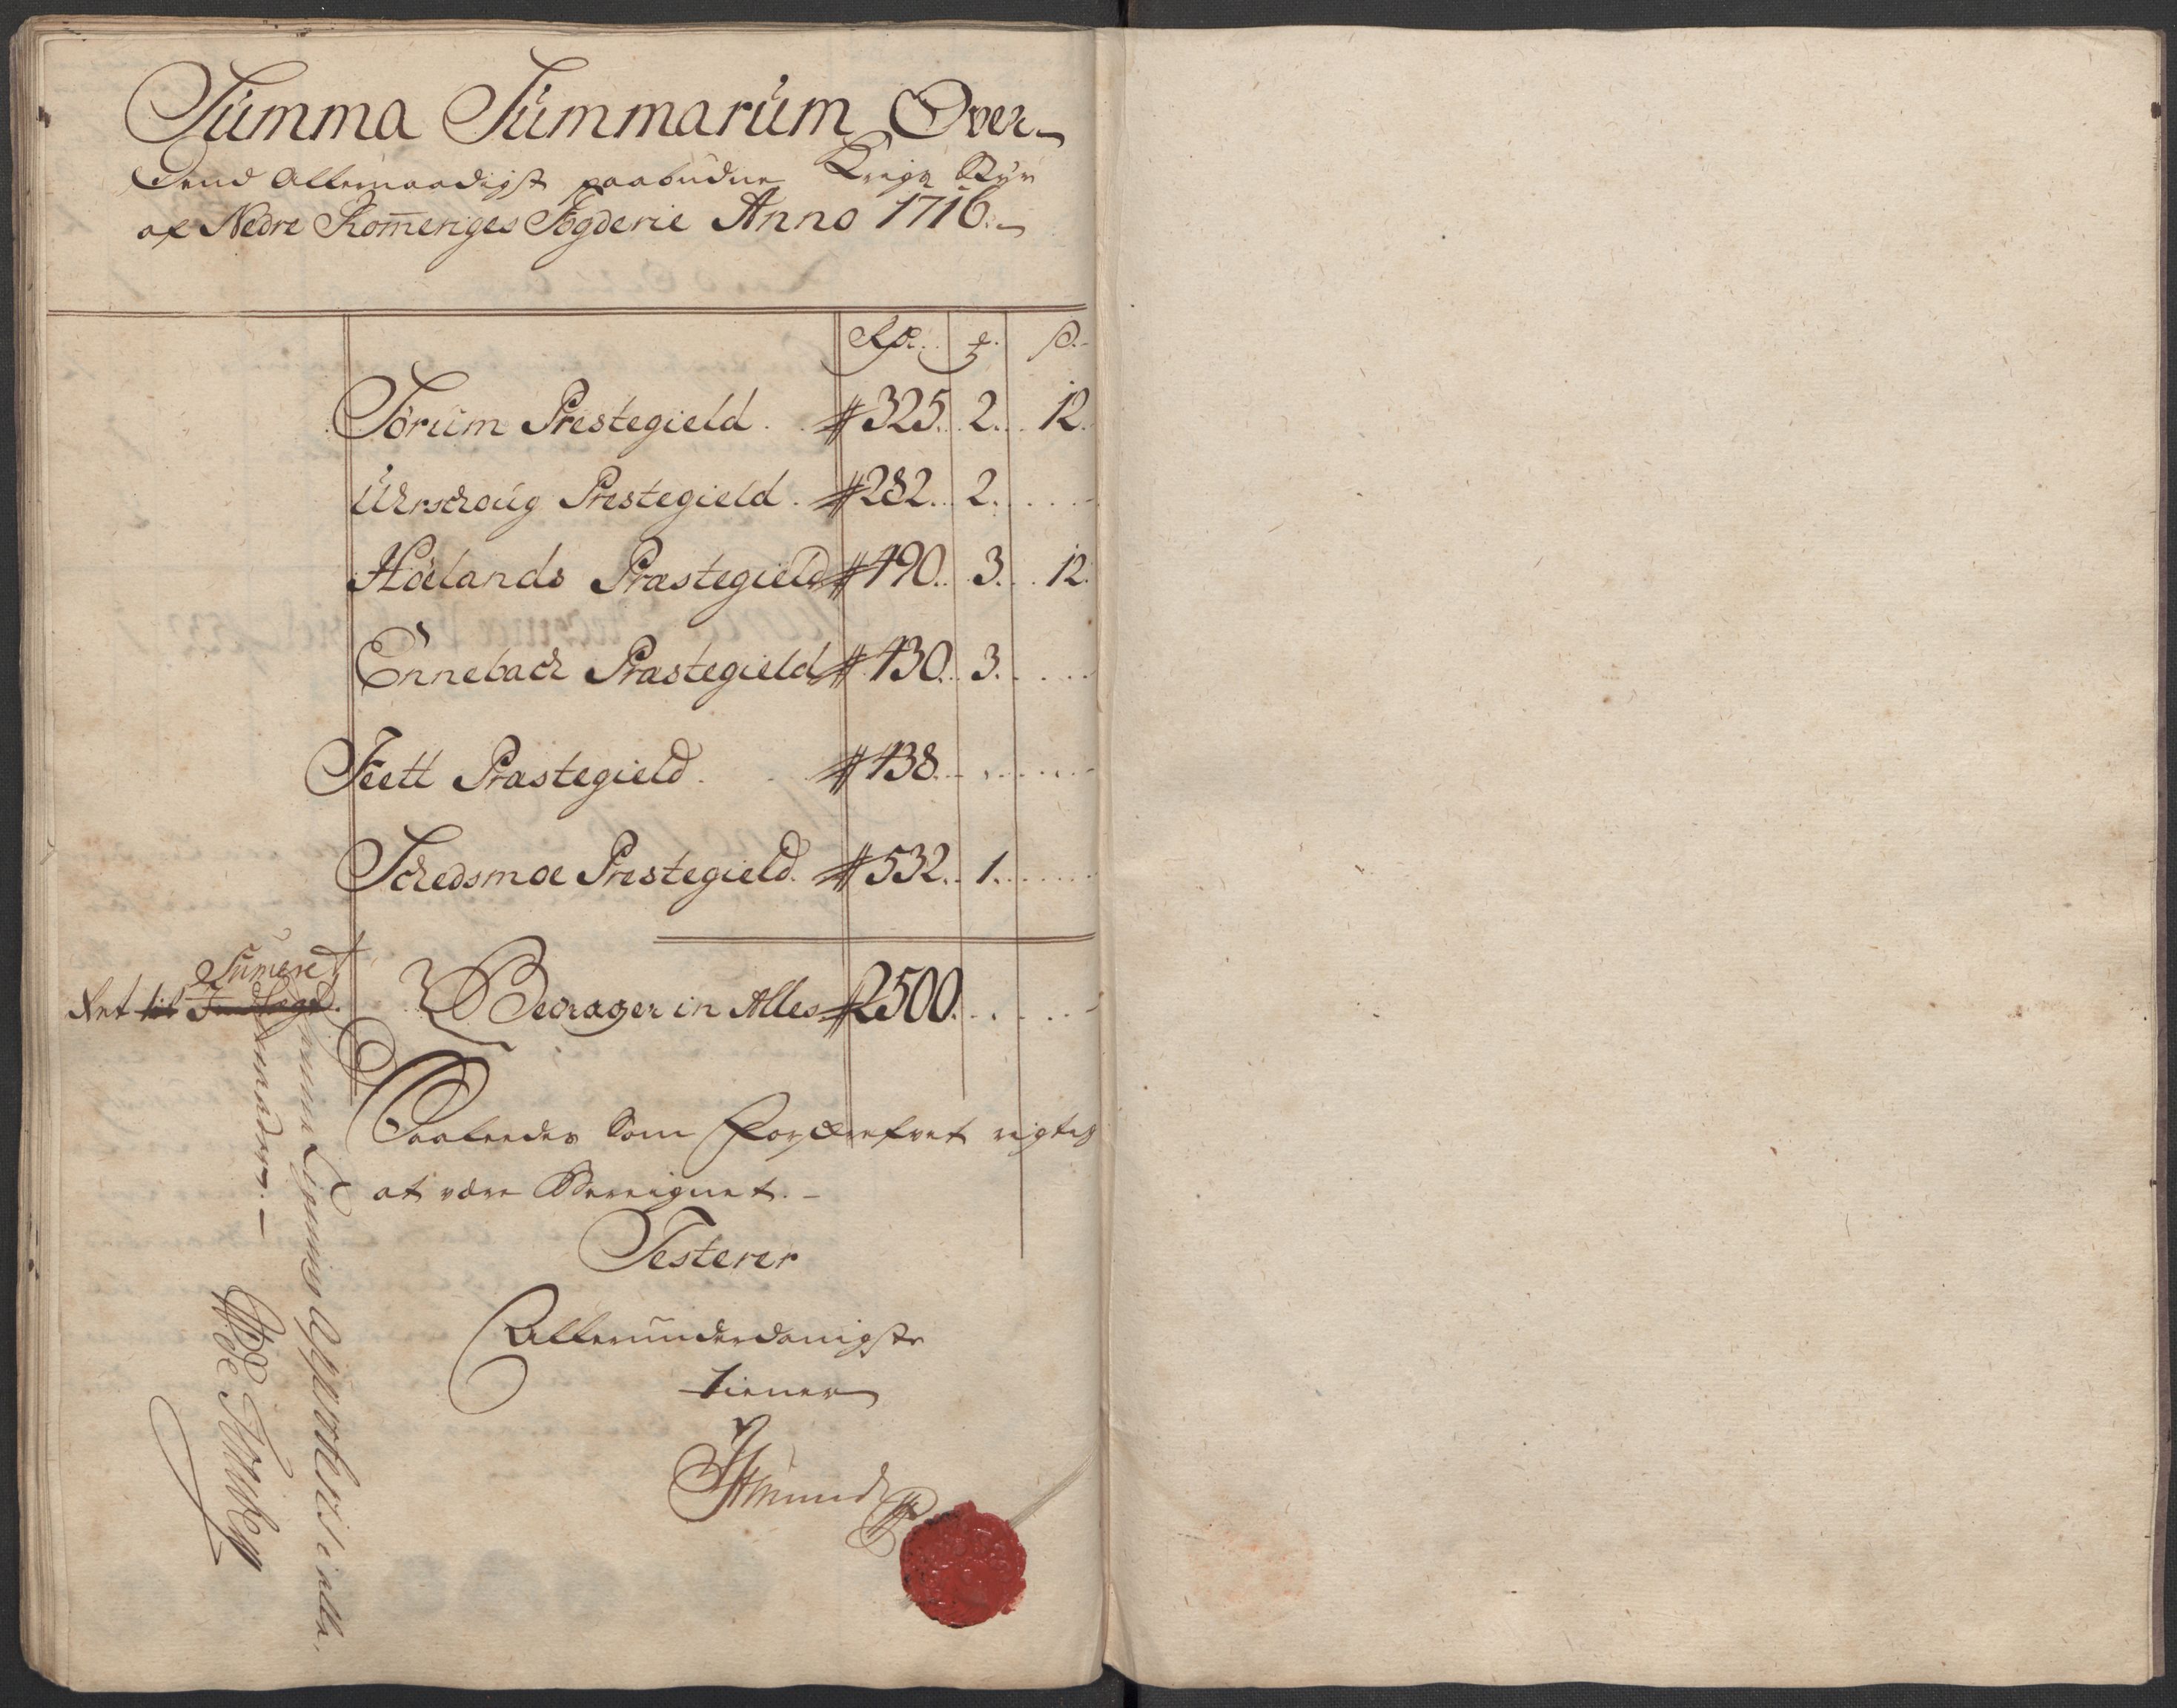 Summa Summarum Over
Dend Allernaadigst paabudne Krigs Styr
af Nedre Romeriges Fogderie Anno 1716.
Rdr. ℔. s.
Sörum Prestegield 325. 2. 12.
Uhrschoug Prestegield 282. 2.
Höelands Præstegield 490. 3. 12.
Ennebach Præstegield 430. 3.
Feett Præstegield 438.
Schedsmoe Prestegield 532. 1.
Bedrager in Alles 2500.
Ret til Indlagt.
Sumeret
Saaledes Som Forskrefvet rigtig
at være Bereignet.
Testerer
Allerunderdanigste
tiener